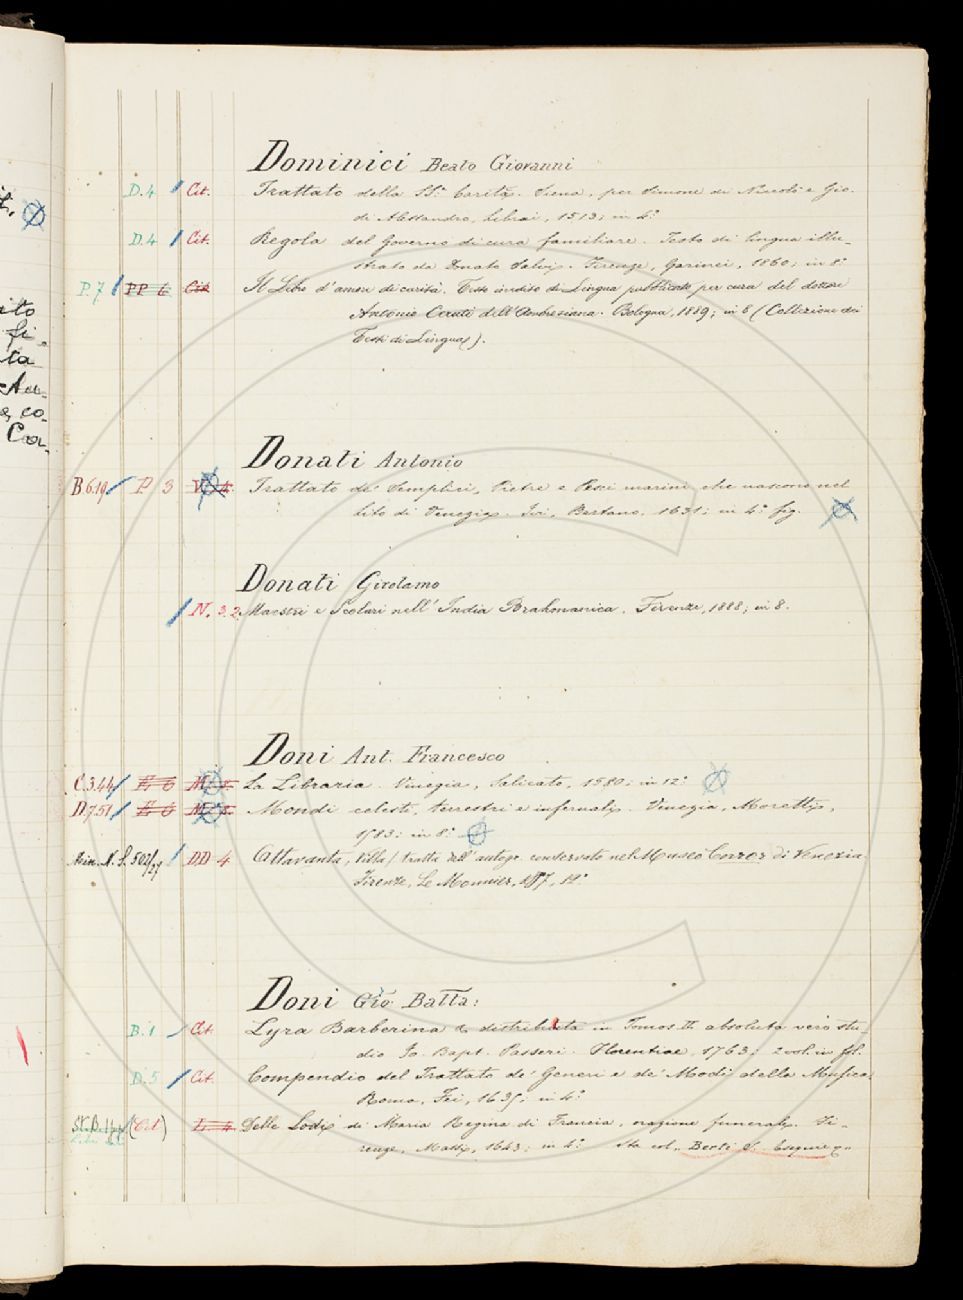 Dominici Beato Giovanni
D. 4 Cit. Trattato della SS.ª Carità. Siena, per Simone di Niccolò e Gio.
di Alessandro, Librai, 1513; in 4.°
D. 4 Cit. Regola del Governo di cura familiare. Testo di lingua illu-
strato da Donato Salvi. Firenze, Garinei, 1860; in 8.°
P. 7 PP 6 Cit Il Libro d'amore di carità. Testo inedito di Lingua pubblicato per cura del dottore
Antonio Ceruti dell'Ambrosiana. Bologna, 1889; in 8 (Collezione dei
Testi di Lingua).
Donati Antonio
B 6.19 P 3 Trattato de' Semplici, Pietre e Pesci marini che nascono nel
lito di Venezia. Ivi, Bertano, 1631; in 4.° fig.
Donati Girolamo
N. 3. 2 Maestri e Scolari nell'India Brahmanica. Firenze, 1888; in 8.
Doni Ant. Francesco
C.3.44 La Libraria. Vinegia, Salicato, 1580; in 12.°
D.7.51 Mondi celesti, terrestri e infernali. Vinegia, Moretti,
1583; in 8.°
DD 4 Attavanta, Villa / tratta dall'autogr. conservato nel Museo Correr di Venezia
Firenze, Le Monnier, 1857, 12.°
Doni Gio: Batta:
B. 1 Cit. Lyra Barberina distributa in Tomos II absoluta vero stu-
dio Jo. Bapt. Passeri. Florentiae, 1763; 2 vol. in fol.
D. 5 Cit. Compendio del Trattato de' Generi e de' Modi della Musica.
Roma, Fei, 1635; in 4.°
(Cit) L. 4 Delle Lodi di Maria Regina di Francia, orazione funerale. Fi-
renze, Massi, 1643; in 4.° Sta col „Berti